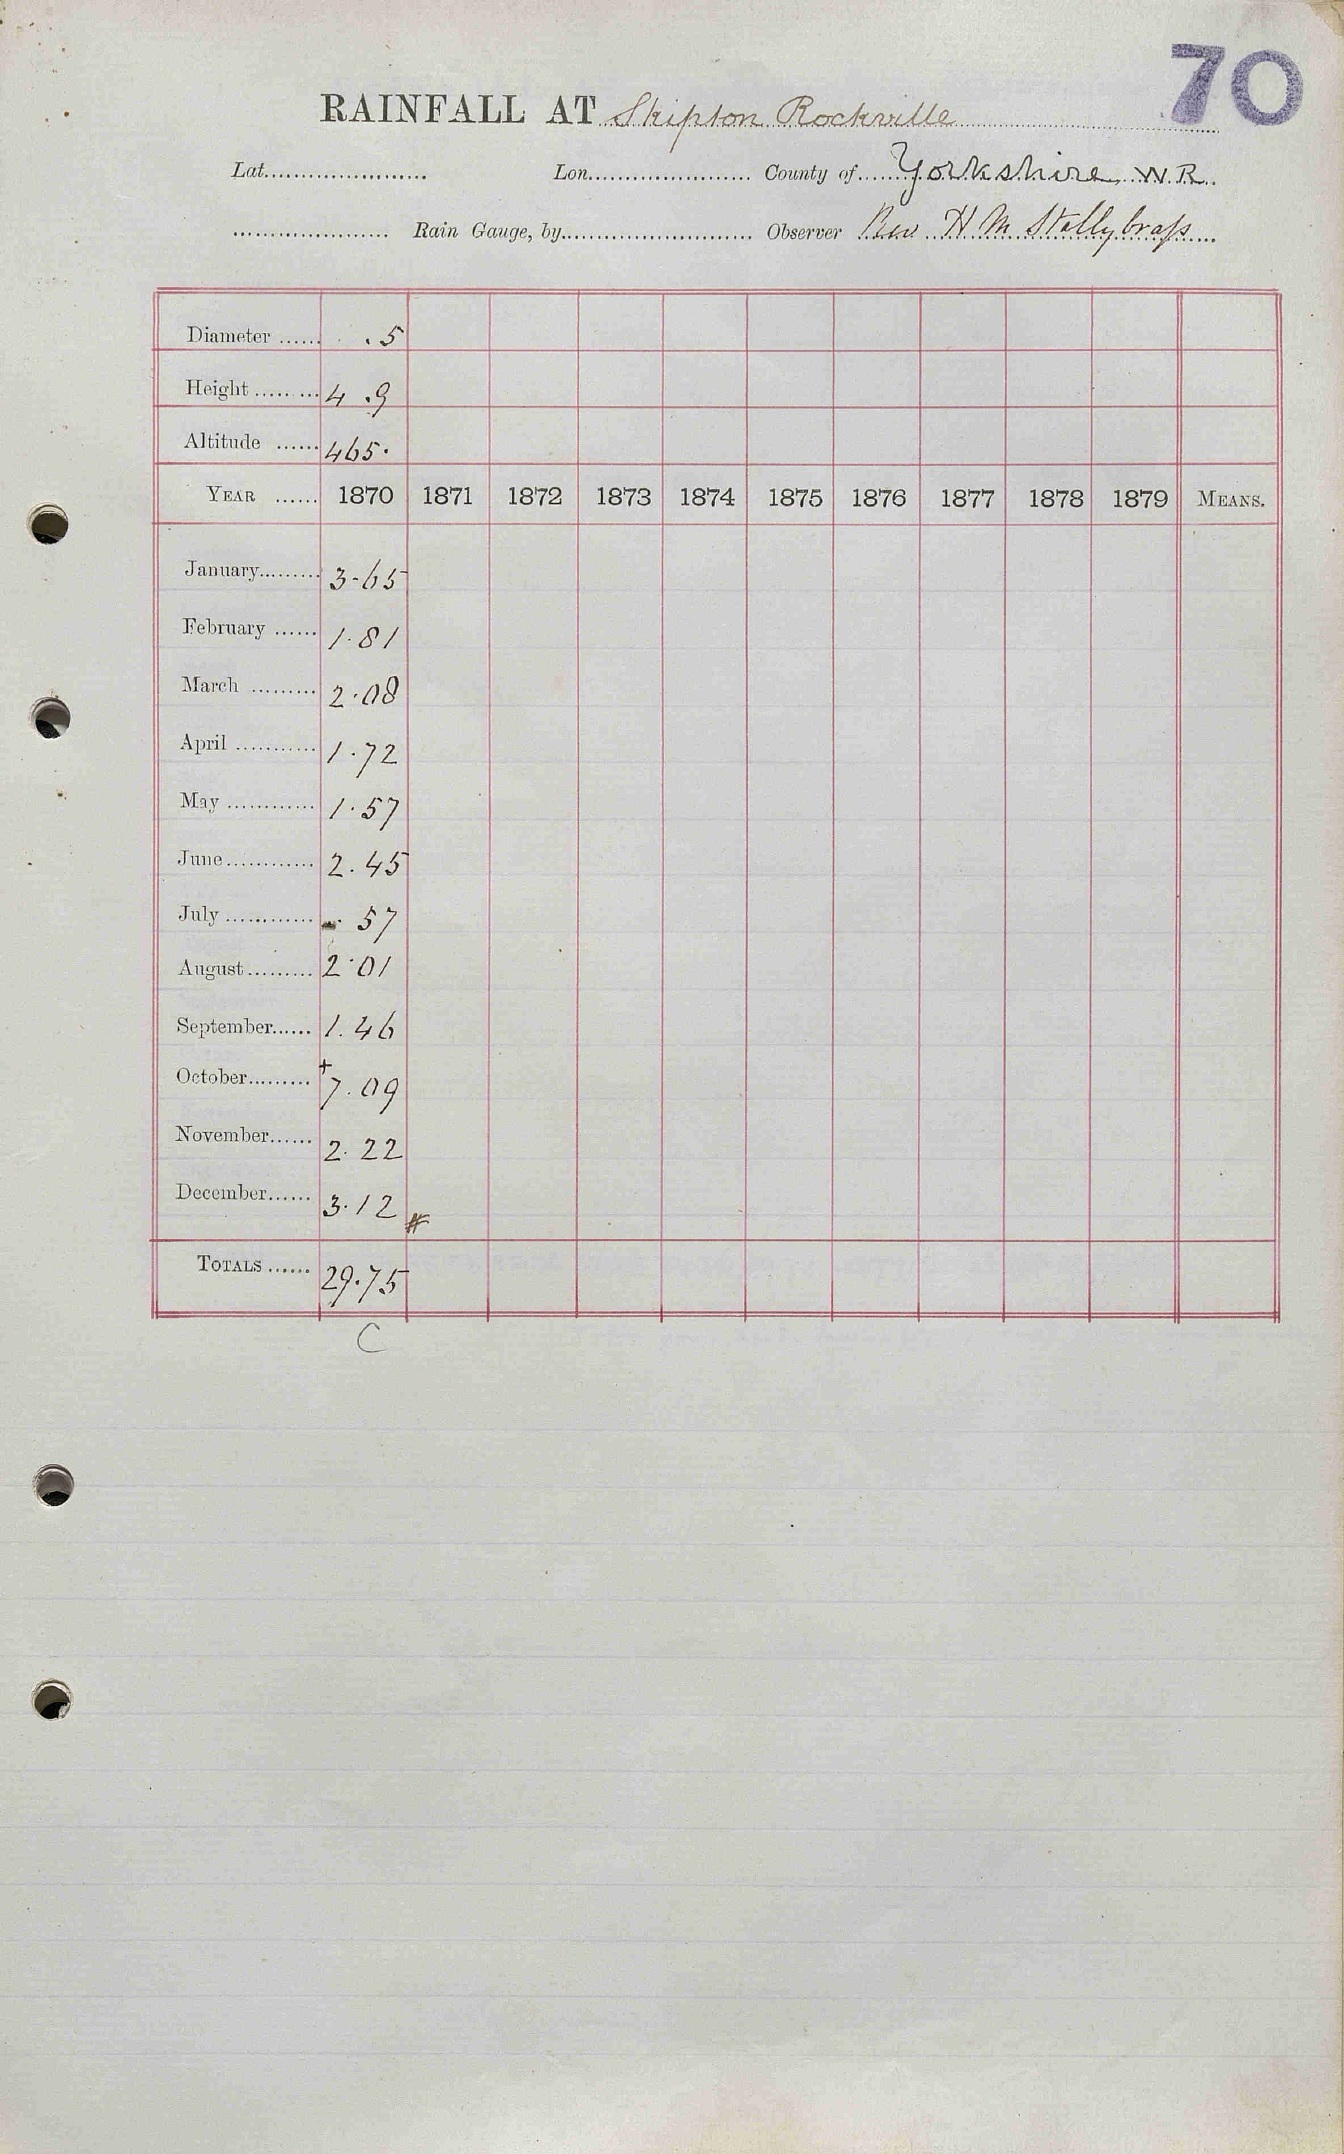 70
RAINFALL AT Skipton Rockville
Lat. Lon. County of Yorkshire W.R.
Rain Gauge, by Observer Rev H M Stallybrass
Diameter ...... .5
Height ......... 4 .9
Altitude ...... 465.
YEAR ...... 1870 1871 1872 1873 1874 1875 1876 1877 1878 1879 MEANS.
January......... 3.65
February ...... 1.81
March ......... 2.08
April ........... 1.72
May ............ 1.57
June............ 2.45
July ............ .57
August......... 2.01
September...... 1.46
October......... +7.09
November...... 2.22
December...... 3.12 #
TOTALS ...... 29.75
C